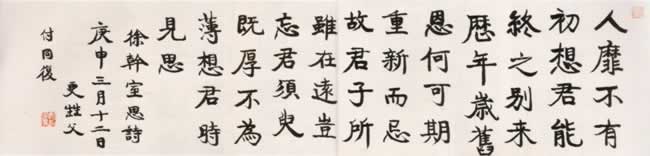 人靡不有
初想君能
終之别来
歷年歲舊
恩何可期
重新而忘
故君子所
雖在遠豈
忘君須臾
既厚不為
薄想君時
見思
徐幹室思詩
庚申三月十二日
更甡父
付同復